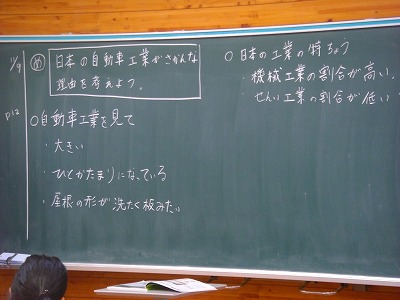 11/9
め 日本の自動車工業がさかんな
理由を考えよう。
P12
○自動車工業を見て
・大きい
・ひとかたまりになっている
・屋根の形が洗たく板みたい
○日本の工業の特ちょう
・機械工業の割合が高い。
・せんい工業の割合が低い